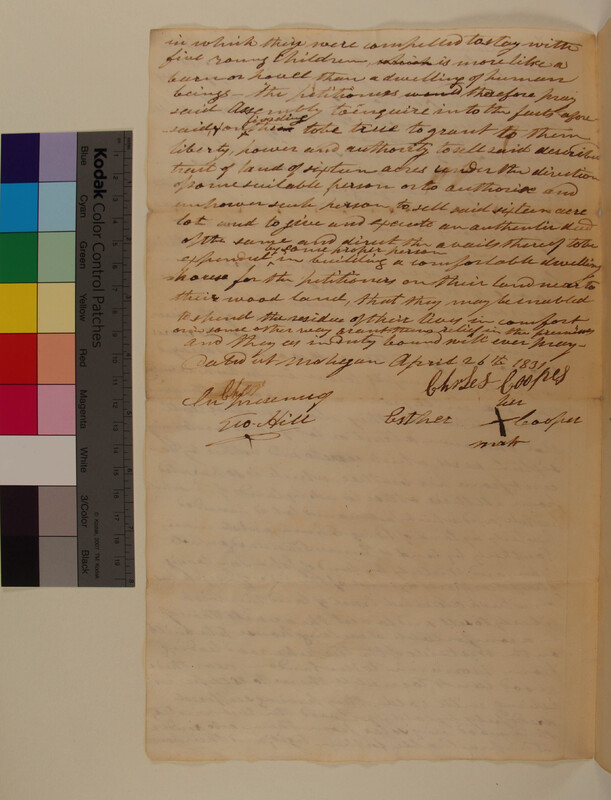 in which they were compelled to stay with
five young Children, which is more like a
barn or hovel than a dwelling of human
beings — the petitioners would therefore pray
said Assembly to enquire into the facts afore
said & on finding them to be true to grant to them
liberty, power and authority to sell said describd
tract of land of sixteen acres under the direction
of some suitable person or to authorise and
empower such person to sell said sixteen acre
lot and to give and execute an authentic deed
of the same and direct the avails thereof to be
by some proper person
expended in building a comfortable dwelling
house for the petitioners on their land near to
their wood land, that they may be enabled
to spend the residue of their lives in comfort
or in some other way grant them relief in the premises
and they as in duty bound will ever pray —
Dated at Mohegan April 26th 1831
Charles Cooper
her
Esther X Cooper
mark
In presence of
Geo. Hill
Kodak Color Control Patches
Blue Cyan Green Yellow Red Magenta White 3/Color Black
© Kodak, 2007 TM: Kodak